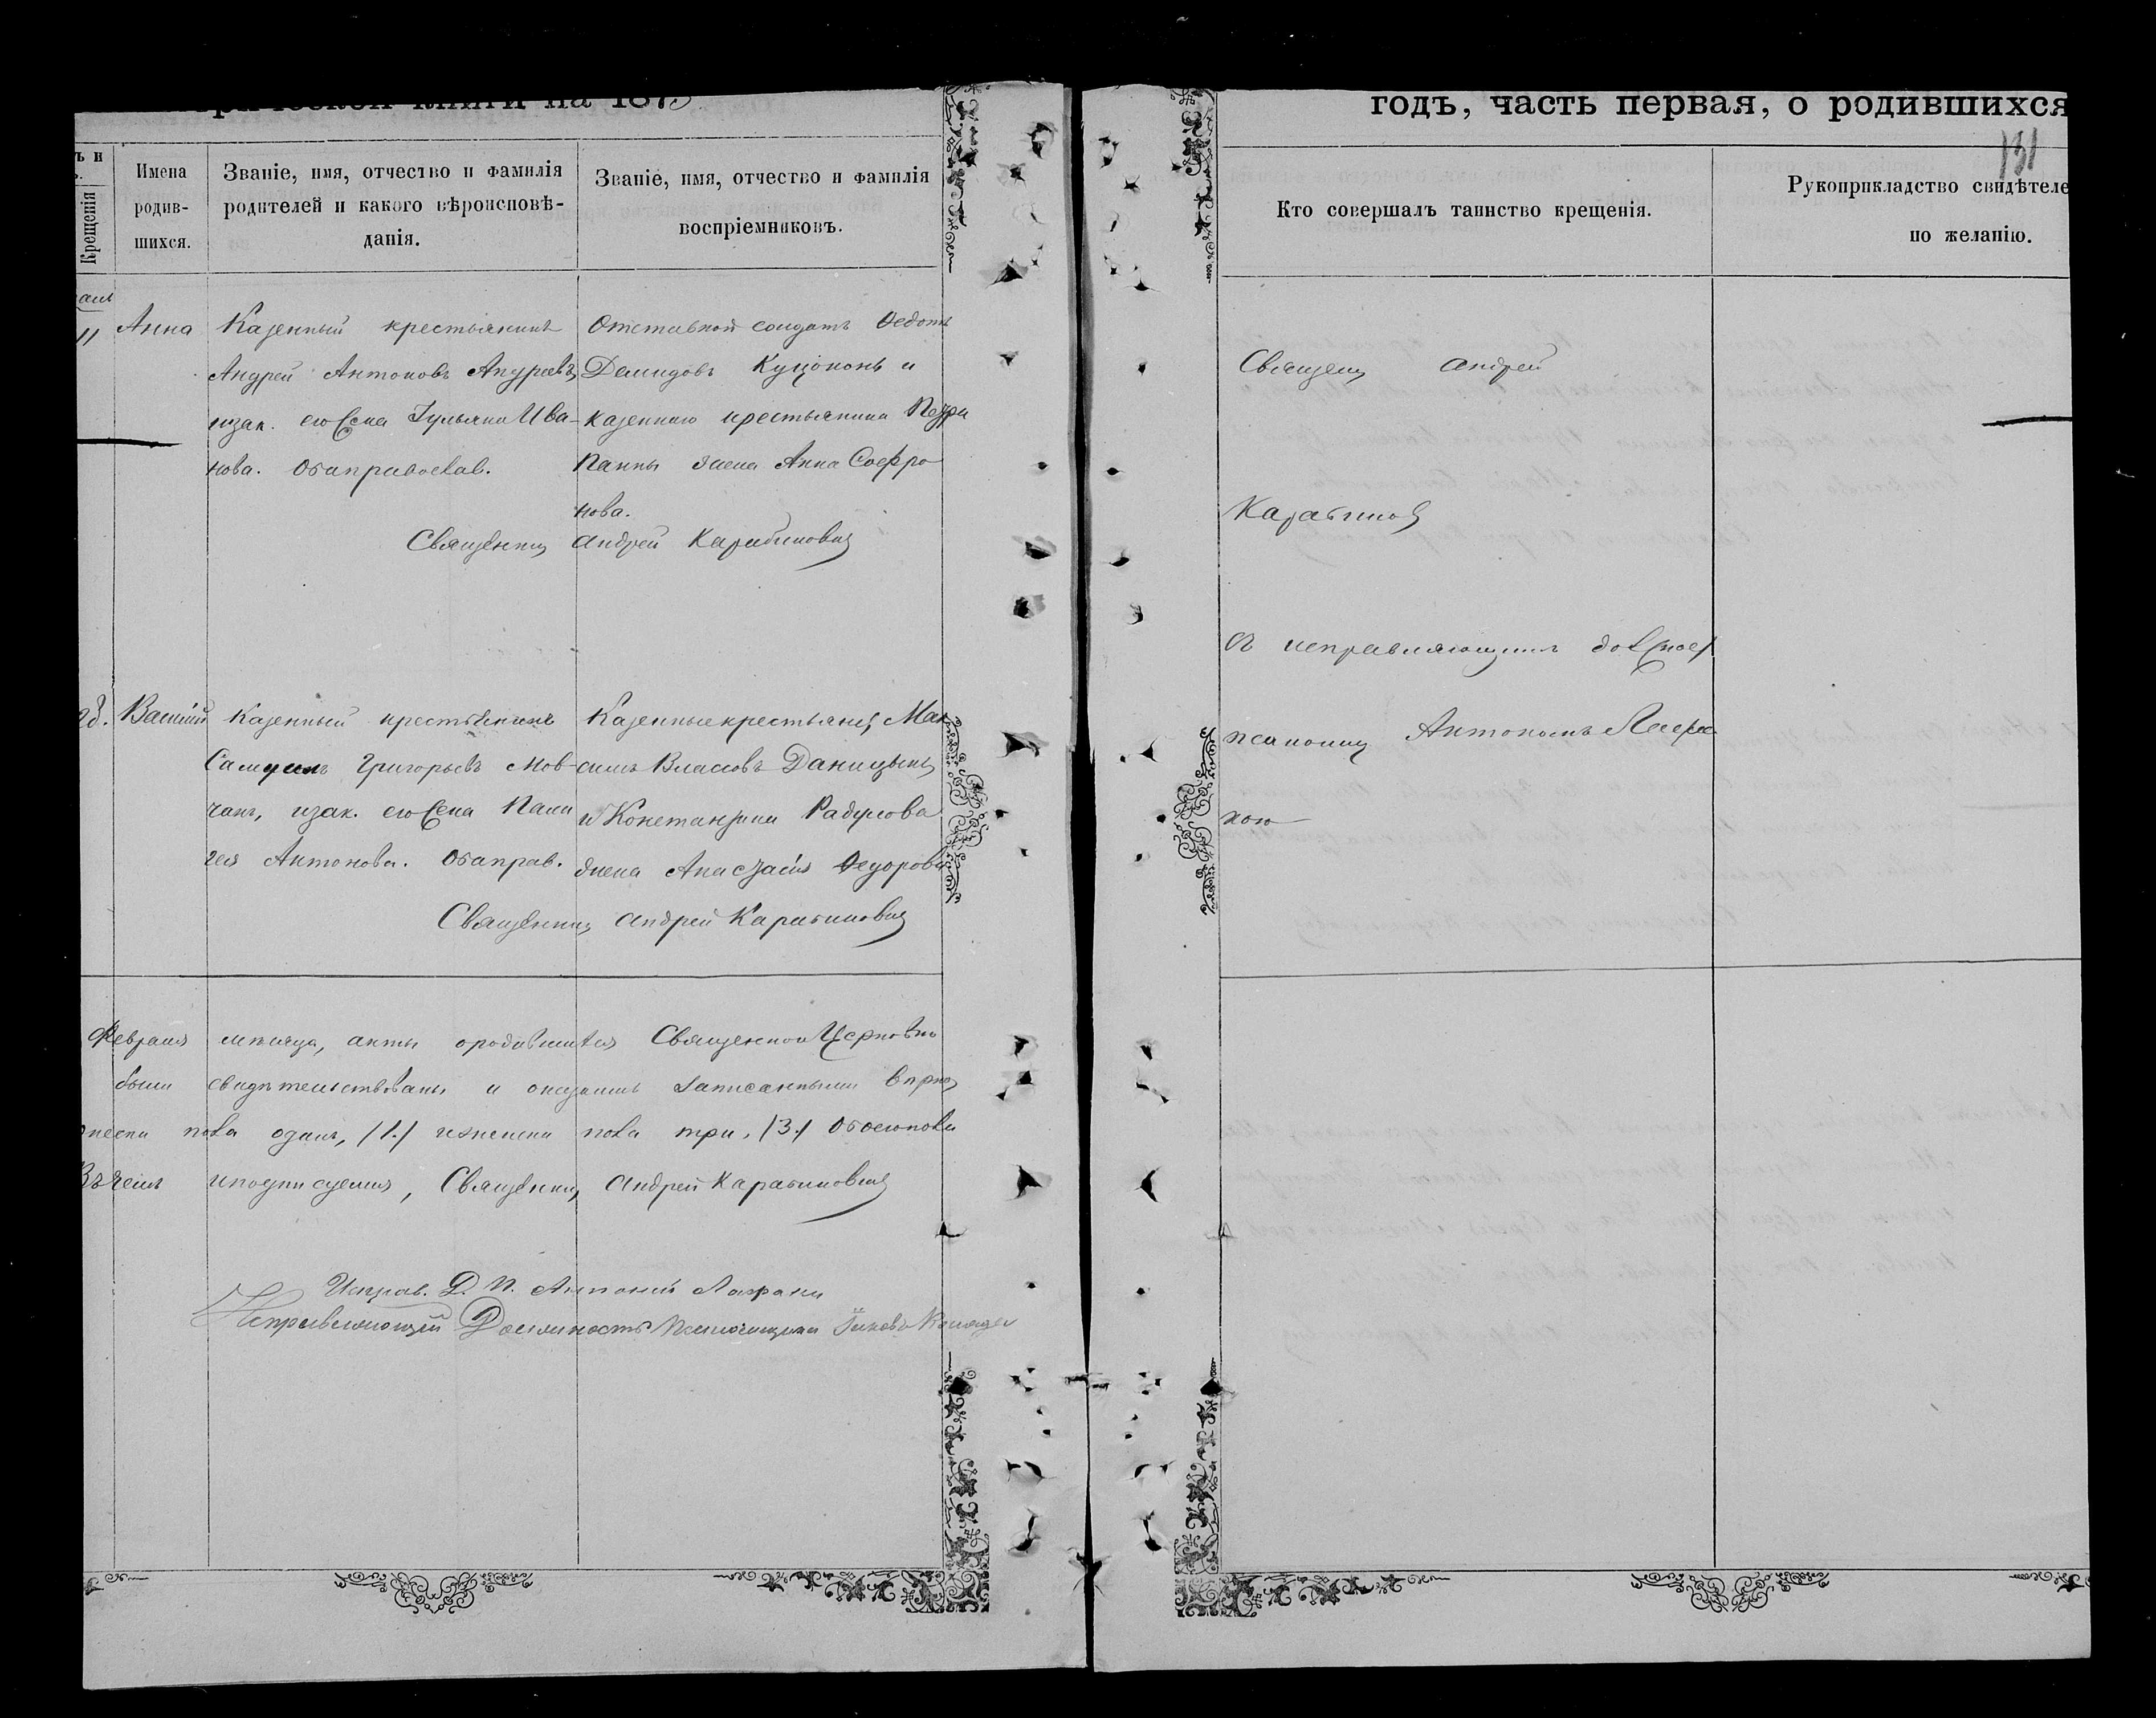 книги на 187
годъ, часть первая, о родившихся
131
ъ и
Крещенія
Имена родив-
шихся.
Званіе, имя, отчество и фамилія
родителей и какого вѣроисповѣ-
данія.
Званіе, имя, отчество и фамилія
воспріемниковъ.
Кто совершалъ таинство крещенія.
Рукоприкладство свидѣтеле
по желанію.
11
Анна
Казенный крестьянинъ
Андрей Антоновъ Андреевъ,
изак. его жена Іульяна Ива-
нова. Оба православ.
Отставной солдатъ Ѳедотъ
Демидовъ Куцоконь и
казеннаго крестьянина Петра
Панны жена Анна Софро
нова.
Священник Андрей Карабиновичъ
Василій
Казенный крестьянинъ
Самуилъ Григорьевъ Мов-
чанъ, изак. его жена Пала
гея Антонова. Оба прав.
Казенные крестьяне, Мак
симъ Власовъ Даницынъ
и Константина Радулова
жена Анастасія Ѳедорова
Священник Андрей Карабиновичъ
Священ Андрей
Карабинов
съ исправляющимъ должност
псаломщ Антономъ
хою
Февраля мѣсяца, акты ородившихся Священной Церковью
были свидѣтельствованы и оказались записанными
пола одинъ, /1./ женска пола три, /3./ Обоего пола
Въ чемъ иподписуемся, Священник Андрей Карабиновичъ
Исправ. Д. П. Антоній
Исправляющій Должность Псаломщика Іаковъ